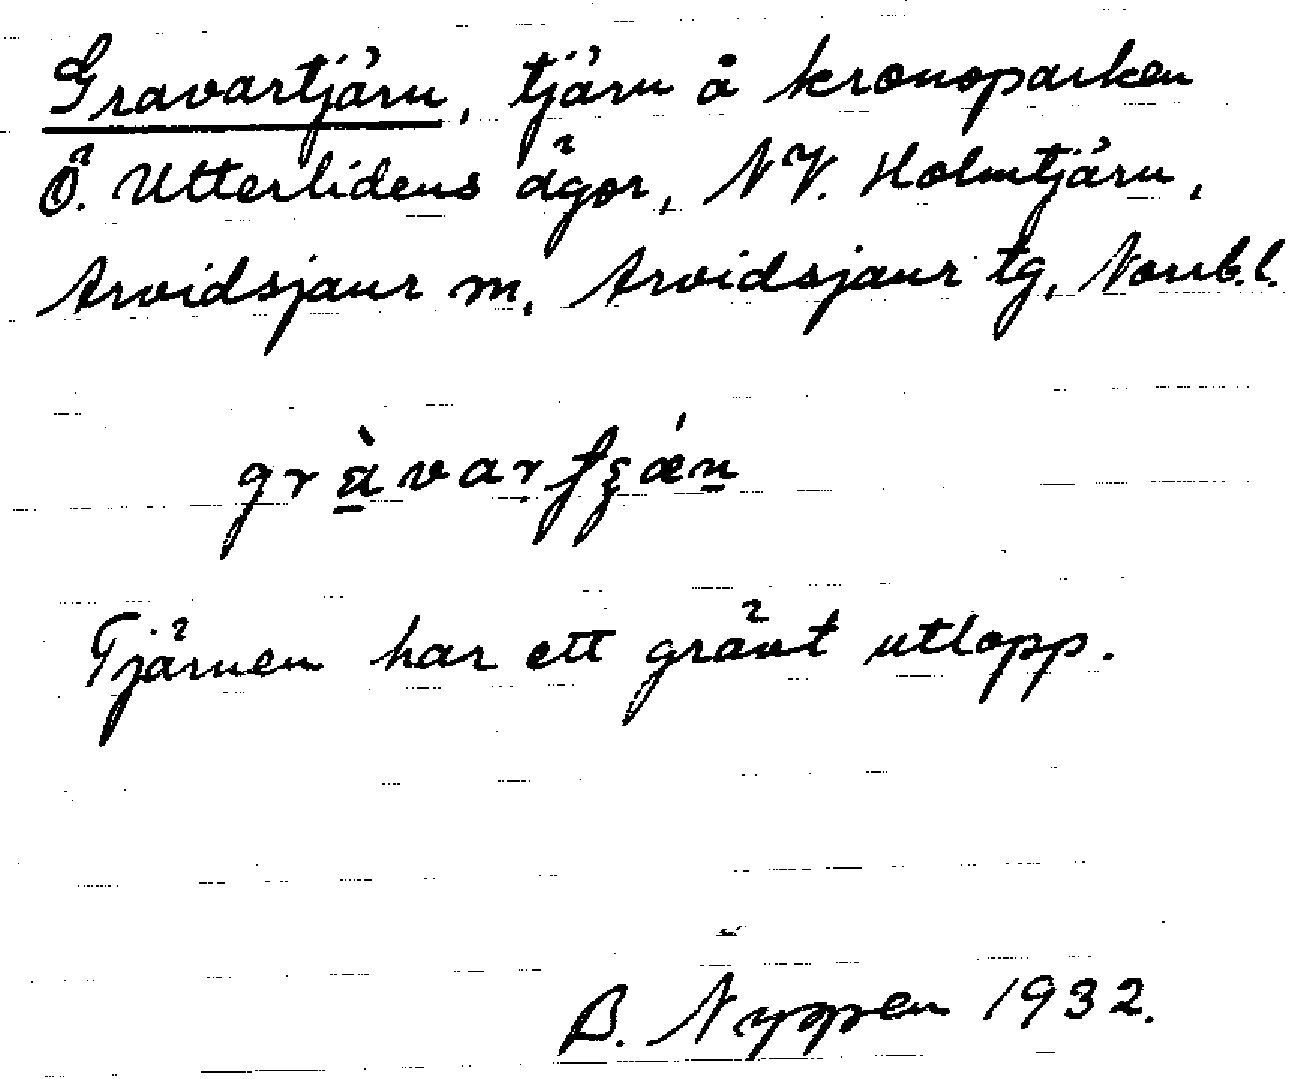 Gravartjärn, tjärn å kronoparken
Ö. Utterlidens ägor, NV. Holmtjärn,
Arvidsjaur sn. Arvidsjaur tg, Norrb.l.
Tjärnen har ett grävt utlopp.
B. Nyppen 1932.